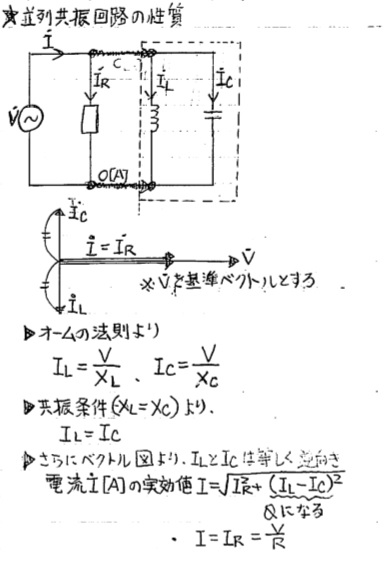 ☆並列共振回路の性質
İ
İR
İL
İC
V̇
0[A]
İC
İ=İR
V̇
※V̇を基準ベクトルとする
İL
▷オームの法則より
IL=V/XL、IC=V/XC
▷共振条件(XL=XC)より、
IL=IC
▷さらにベクトル図より、ILとICは等しく逆向き
電流İ[A]の実効値I=√IR²+(IL-IC)²
0になる
・ I=IR=V/R